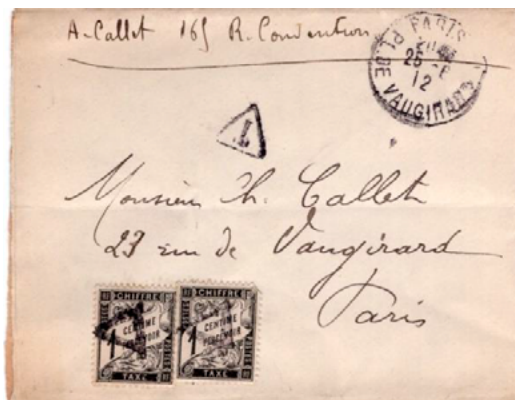 A. Callet 165 R. Convention
PARIS
25 - 6
12
PL. DE VAUGIRARD
T
Monsieur Th. Callet
23 rue de Vaugirard
Paris
CHIFFRE
1
CENTIME
PERCEVOIR
TAXE
CHIFFRE
1
CENTIME
PERCEVOIR
TAXE